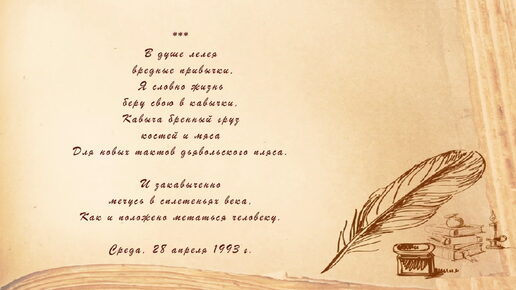 ***
В душе лелея
вредные привычки,
Я словно жизнь
беру свою в кавычки,
Кавыча бренный груз
костей и мяса
Для новых тактов дьявольского пляса.
И закавыченно
мечусь в сплетеньях века,
Как и положено метаться человеку.
Среда, 28 апреля 1993 г.